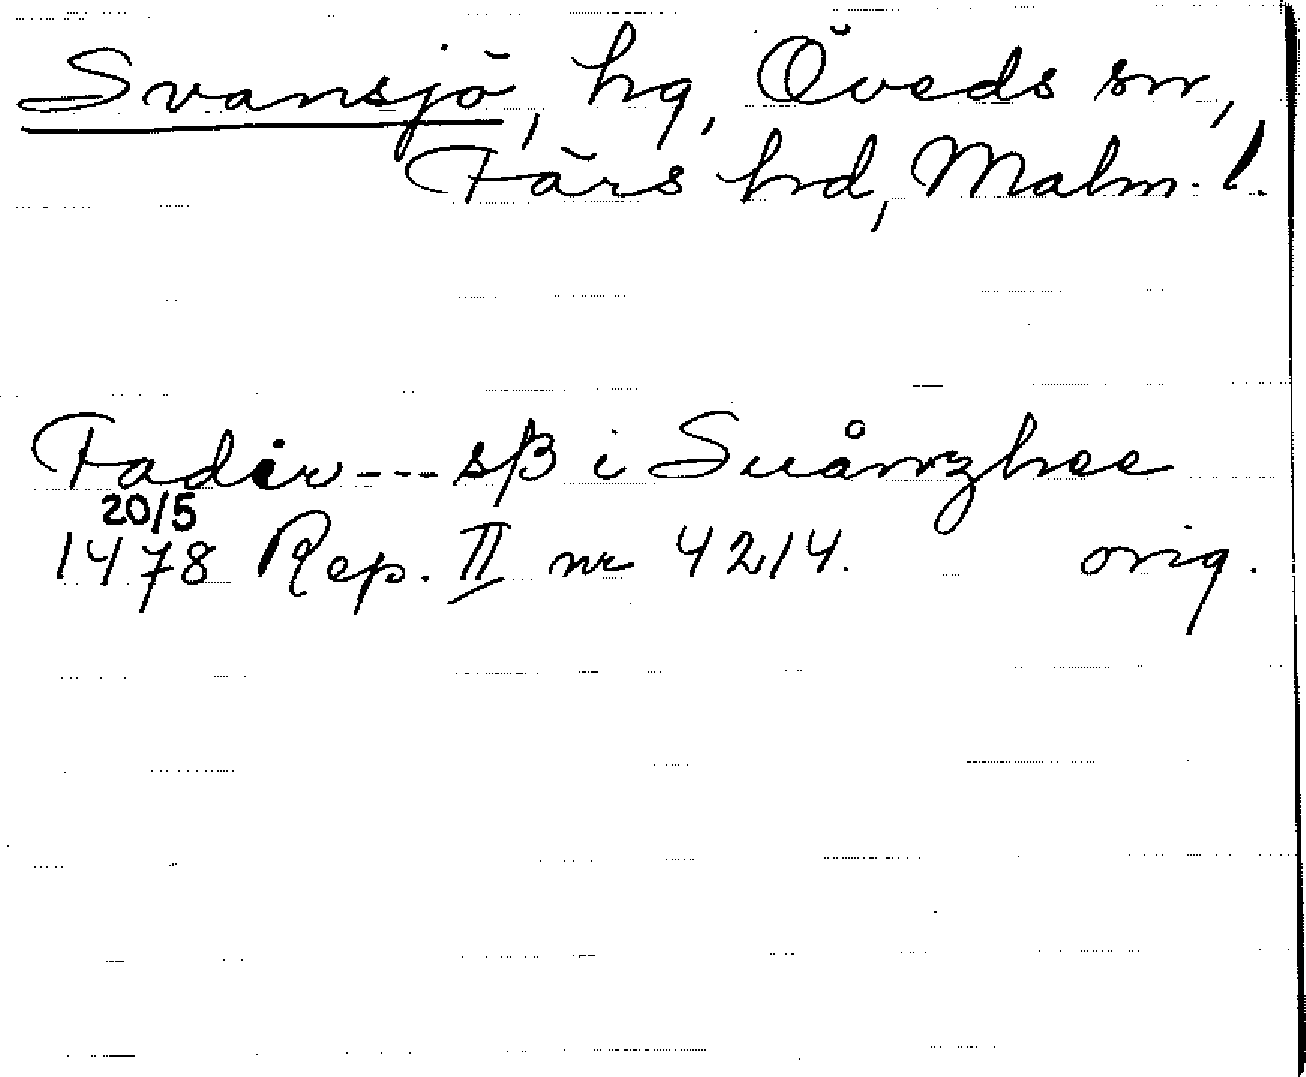 Svansjö, hg, Öveds sn,
Färs hd, Malm. l.
Fadir --- sß i Suånzhee
20/5
1478 Rep. II nr 4214. orig.